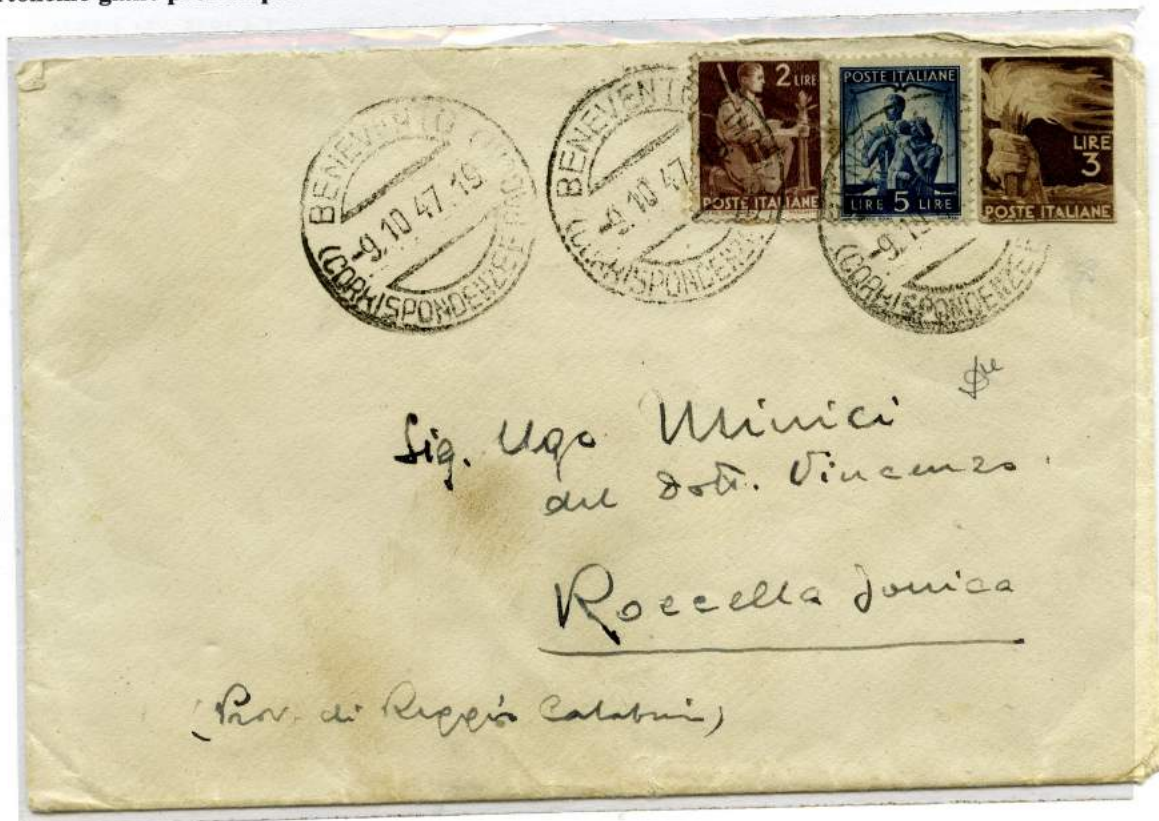 BENEVENTO
-9.10.47.19
(CORRISPONDENZE E
BENEVENTO
-9.10.47
(CORRISPONDENZE
-9.10
(CORRISPONDENZE E
2 LIRE
POSTE ITALIANE
POSTE ITALIANE
LIRE 5 LIRE
LIRE
3
POSTE ITALIANE
Sig. Ugo Minici
del Dott. Vincenzo
Roccella Jonica
(Prov. di Reggio Calabria)